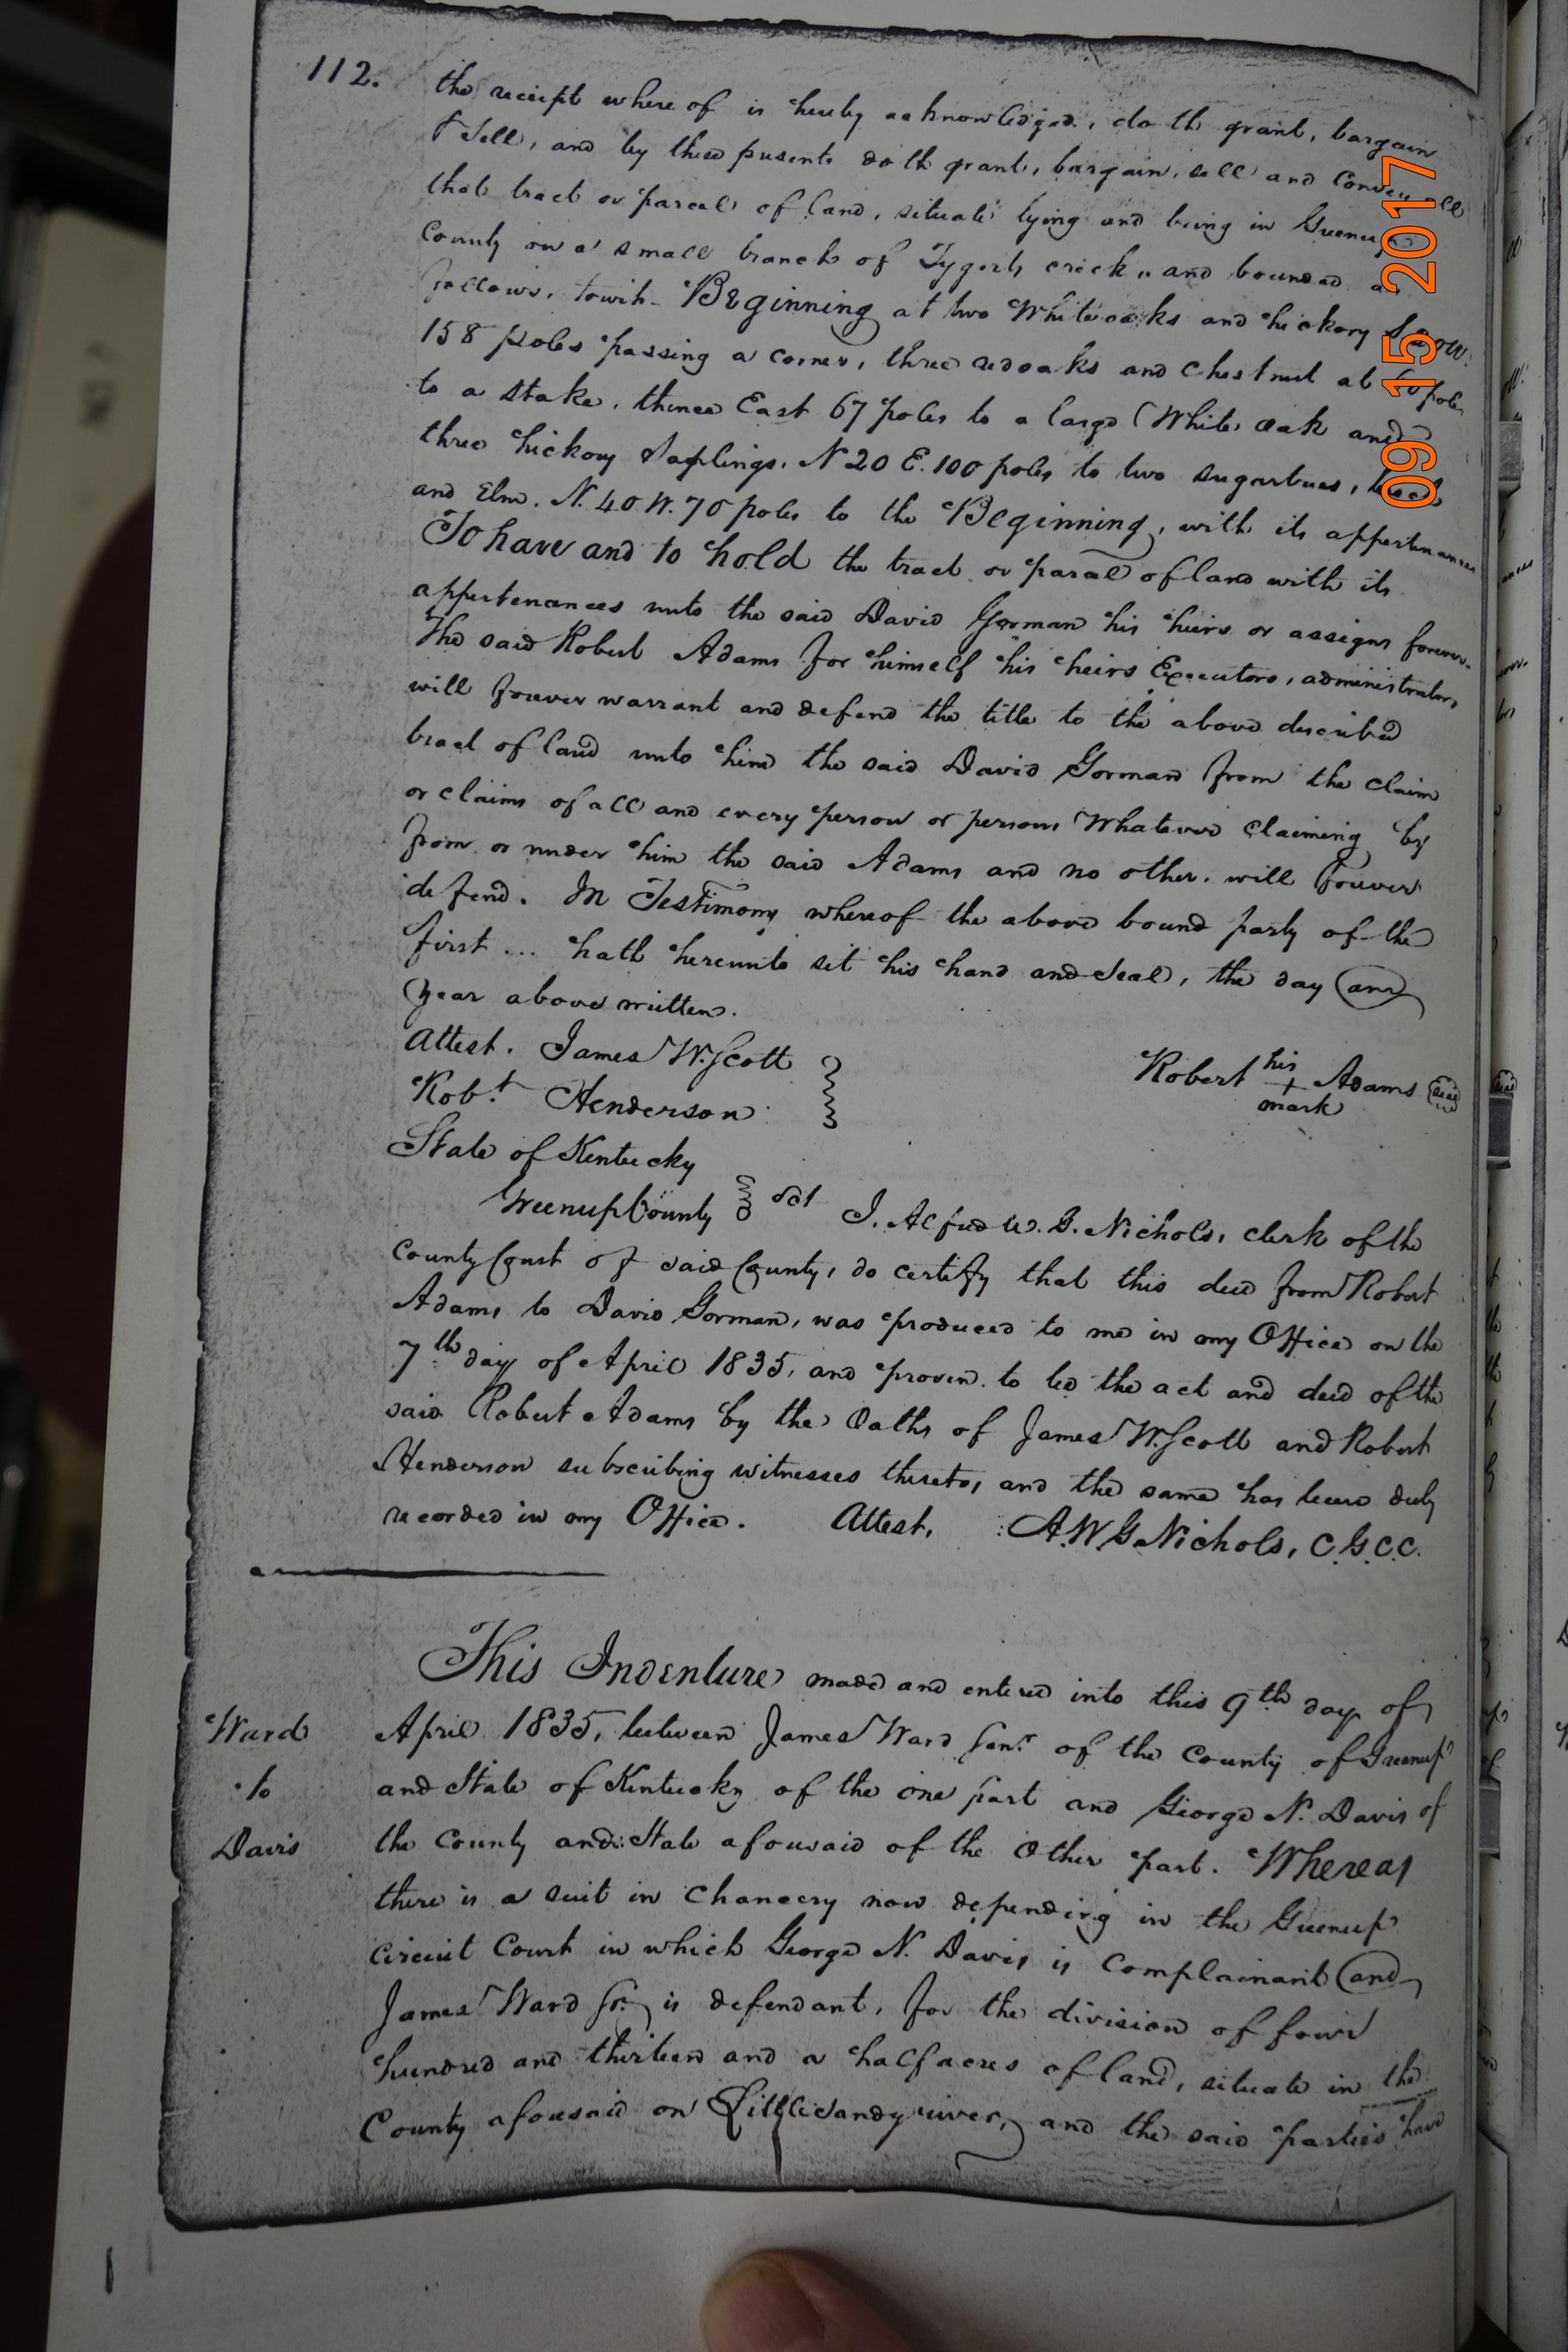 112.
the receipt where of is hereby acknowledged, doth grant, bargain
& Sell, and by these presents doth grant, bargain, sell and Convey all
that tract or parcel of land, situate lying and being in Greenup
County on a small branch of Tygerts creek, and bounded as
follows, towit- Beginning at two Whiteoaks and hickory
158 poles passing a corner, three redoaks and Chestnut at poles
to a stake, thence East 67 poles to a large White oak and
three hickory Saplings. N 20 E. 100 poles to two sugartrees,
and Elm. N. 40 W. 70 poles to the Beginning, with its appertenances
To have and to hold the tract or parcel of land with its
appertenances unto the said David Gorman his heirs or assigns forever.
The said Robert Adams for himself his heirs Executors, administrators,
will forever warrant and defend the title to the above described
tract of land unto him the said David Gorman from the claim
or claims of all and every person or persons Whatever Claiming by
from or under him the said Adams and no other. will forever
defend. In Testimony whereof the above bound party of the
first ... hath hereunto set his hand and Seal, the day and
Year above written.
Attest. James W. Scott
Robt. Henderson
Robert his + mark Adams seal
State of Kentucky
Greenup County Sct I. Alfred W. G. Nichols, clerk of the
County Court of said County, do certify that this deed from Robert
Adams to David Gorman, was produced to me in my Office on the
7th day of April 1835, and proven to be the act and deed of the
said Robert Adams by the Oaths of James W. Scott and Robert
Henderson subscribing witnesses thereto, and the same has been duly
recorded in my Office. Attest, A. W. G. Nichols, C.G.C.C.
This Indenture made and entered into this 9th day of
Ward
to
Davis
April 1835, between James Ward Senr. of the County of Greenup
and State of Kentucky of the one part and George N. Davis of
the County and State aforesaid of the Other part. Whereas
there is a suit in Chancery now depending in the Greenup
Circuit Court in which George N. Davis is Complainant and
James Ward Sr. is defendant, for the division of four
hundred and thirteen and a half acres of land, situate in the
County aforesaid on Little Sandy river, and the said parties have
09 15 2017